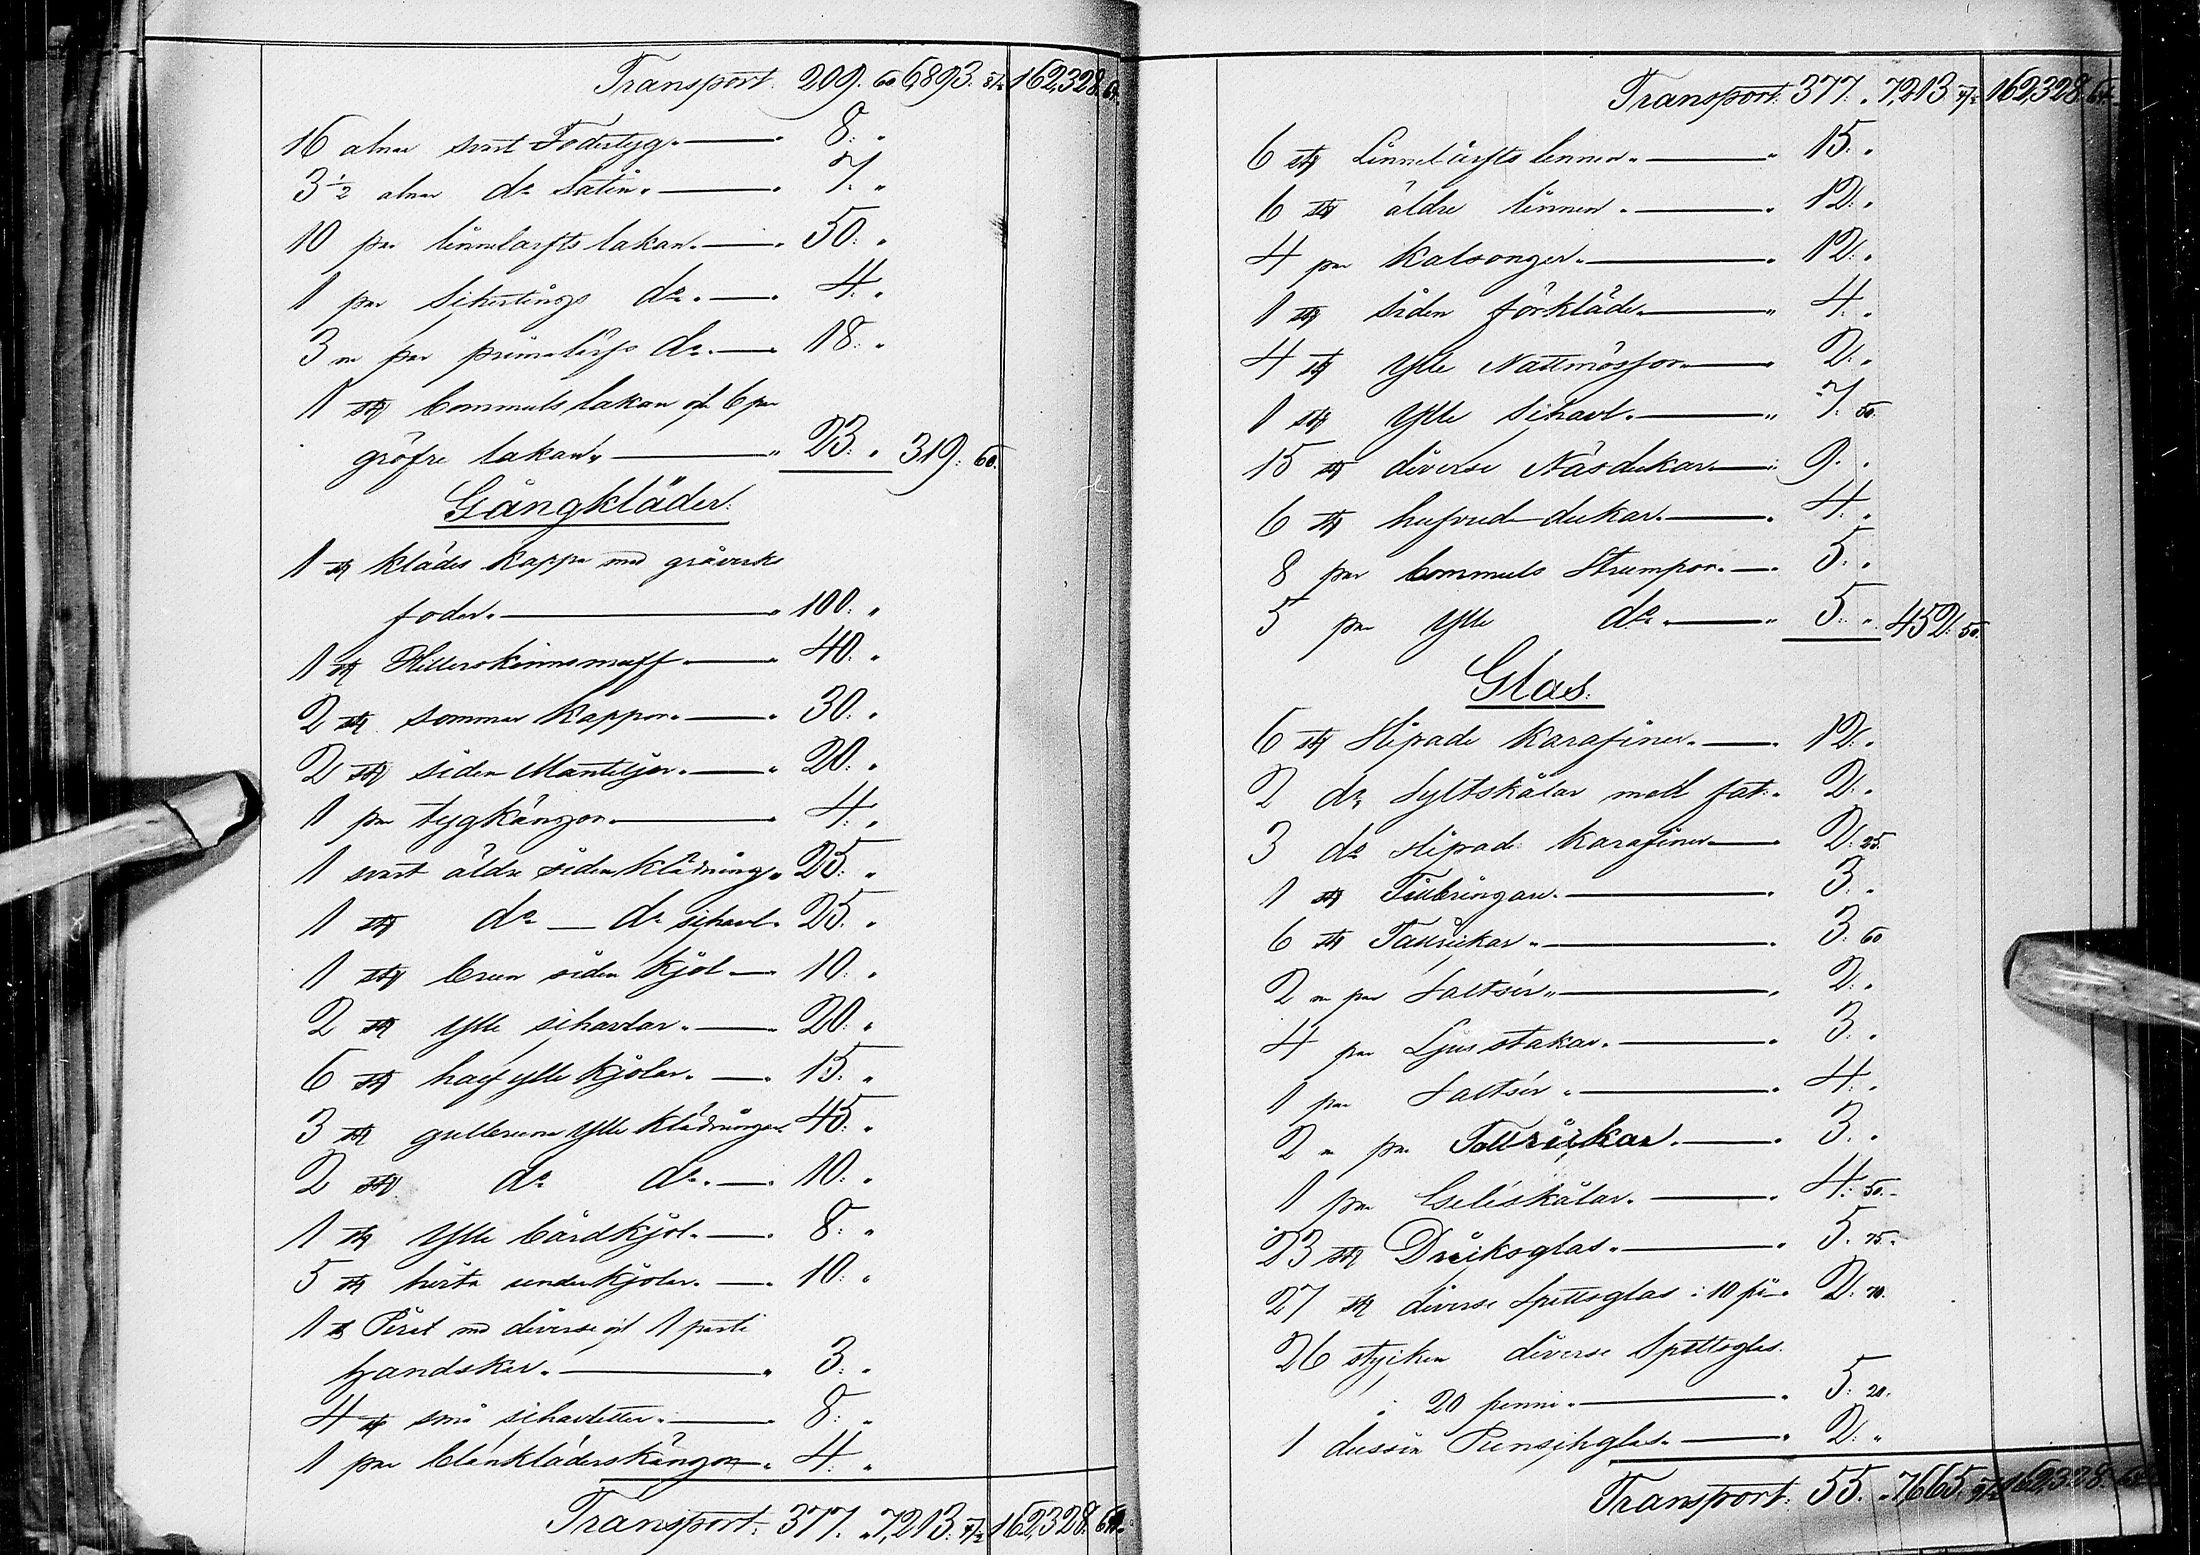 Transport. 209. 60 6,893. 162,328. 64.
16 alnar svart Fodertyg. 8: "
3 1/2 alnar do Satin. 7. "
10 par linnelärfts lakan. 50: "
1 par Schirtings do. 4. "
3 " par primalärfs do. 18: "
1 st bommuls lakan och 6 par
gröfre lakan. 23: " 319: 60.
Gångkläder.
1 st klädes kappa med gråverks
foder. 100: "
1 st Hillerskinnsmuff. 40: "
2 st sommar kappor. 30: "
2 st siden Mantiljer. 20: "
1 par tygkängor. 4: "
1 svart äldre siden klädning. 25: "
1 st do — do schavl. 25: "
1 st brun siden kjol 10: "
2 st ylle schavlar. 20: "
6 st half ylle kjolar. 15: "
3 st ylle klädningar 45: "
2 st do do. 10: "
1 st ylle bårdkjol. 8: "
5 st hvita underkjolar. 10: "
1 st med diverse och 1 parti
handskar. 3: "
4 st små schavletter. 8: "
1 par blänkläderskängor. 4: "
Transport. 377. " 7,213: 162,328. 64.
Transport: 377: " 7,213 162,328 64.
6 st Linnelärfts linnen. 15: "
6 st äldre linnen. 12: "
4 par kalsonger. 12: "
1 st siden förkläde. 4: "
4 st ylle Nattmössor. 2: "
1 st ylle schavl. 7: 50.
15 st diverse Näsdukar 9. "
6 st hufvud dukar. 4: "
8 par bommuls Strumpor. 5: "
5 par ylle do. 5: " 452: 50.
Glas.
6 st Slipade karafiner. 12: "
2 do Syltskålar med fat. 2: "
3 do slipade karafiner 2: 25.
1 st Tillbringare. 3. "
6 st Tallrickar. 3: 60
2 " par Saltsör. 2: "
4 par Ljusstakar. 3: "
1 par Saltsör. 4: "
2 " par Tallrickar. 3: "
1 par Geléskålar. 4: 50.
23 st Dricksglas. 5: 75.
27 st diverse Spettsglas à 10 pi 2: 70.
26 stycken diverse Spettsglas
à 20 penni. 5: 20.
1 dussin Punschglas. 2: "
Transport: 55. " 7,665. 162,328. 64